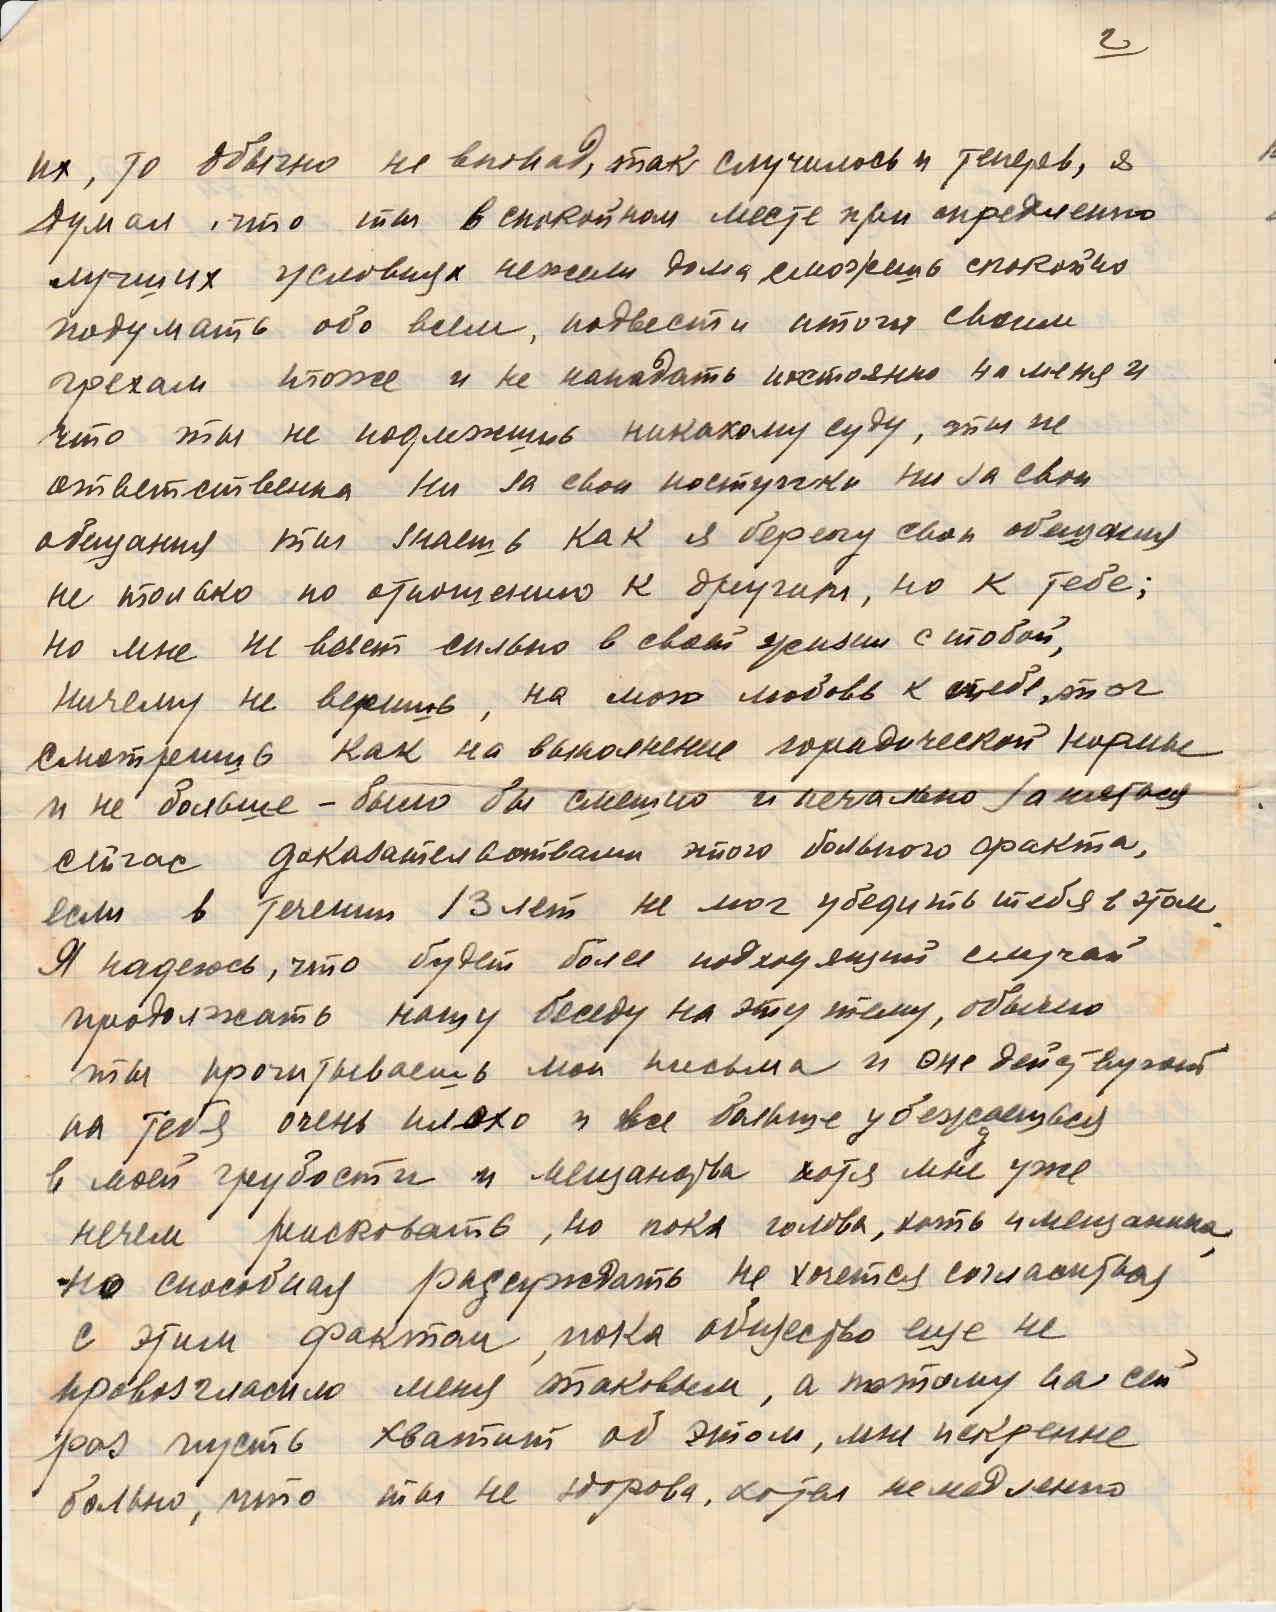 2
их, то обычно не впопад, так случилось и теперь, я
думал, что ты в спокойном месте при определенно
лучших условиях нежели дома сможешь спокойно
подумать обо всем, подвести итоги своим
грехам тоже и не нападать постоянно на меня и
что ты не подлежишь никакому суду, ты не
ответственна ни за свои поступки ни за свои
обещания ты знаешь как я берегу свои обещания
не только по отношению к другим, но к тебе;
но мне не везет сильно в своей жизни с тобой,
ничему не веришь, на мою любовь к тебе,
смотришь как на выполнение юридической нормы
и не больше – было бы смешно и печально заняться
сейчас доказательствами этого больного факта,
если в течении 13 лет не мог убедить тебя в этом.
Я надеюсь, что будет более подходящий случай
продолжать нашу беседу на эту тему, обычно
ты прочитываешь мои письма и оне действуют
на тебя очень плохо и все больше убеждаешься
в моей грубости и мещанства хотя мне уже
нечем рисковать, но пока голова, хоть и мещанина,
но способная рассуждать не хочется согласиться
с этим фактом, пока общество еще не
провозгласило меня таковым, а потому на сей
раз пусть хватит об этом, мне искренне
больно, что ты не здорова, хотел немедленно